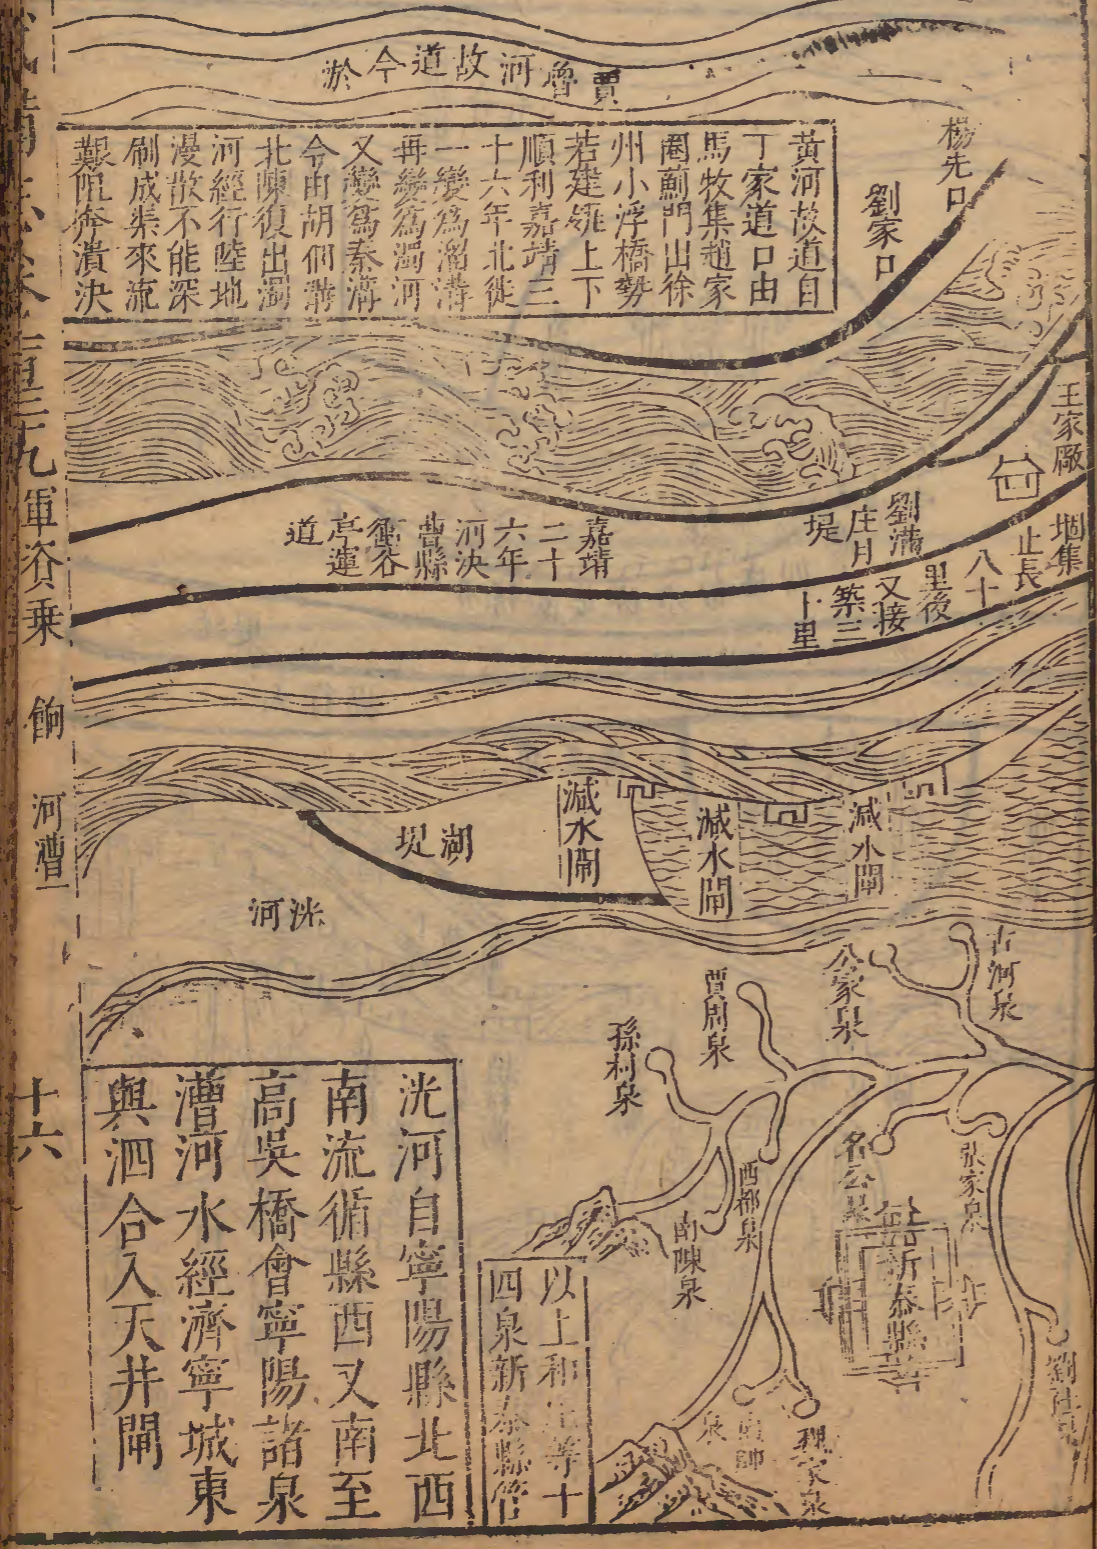 賈魯河故道今淤
楊先口
劉家口
黃河故道自
丁家道口由
馬牧集趙家
圈薊門出徐
州小浮橋勢
若建瓴上下
順利嘉靖三
十六年北徙
一變爲溜溝
再變爲濁河
又變爲秦溝
今由胡佃溝
北陳復出濁
河經行陸地
漫散不能深
刷成渠來流
艱阻奔潰決
王家廠
堌集
止長
八十
里後
又接
築三
十里
劉滿
庄月
堤
嘉靖
二十
六年
河決
曹縣
衝谷
亭運
道
減水閘
減水閘
減水閘
湖堤
洸河
古河泉
公家泉
賈周泉
孫村泉
張家泉
名公泉
西都泉
南陳泉
新泰縣
劉
魏家泉
泉
以上和莊等十
四泉新泰縣管
洸河自寧陽縣北西
南流循縣西又南至
高吳橋會寧陽諸泉
漕河水經濟寧城東
與泗合入天井閘
武備志卷一百三十九
軍資乘
餉
河漕一
十六